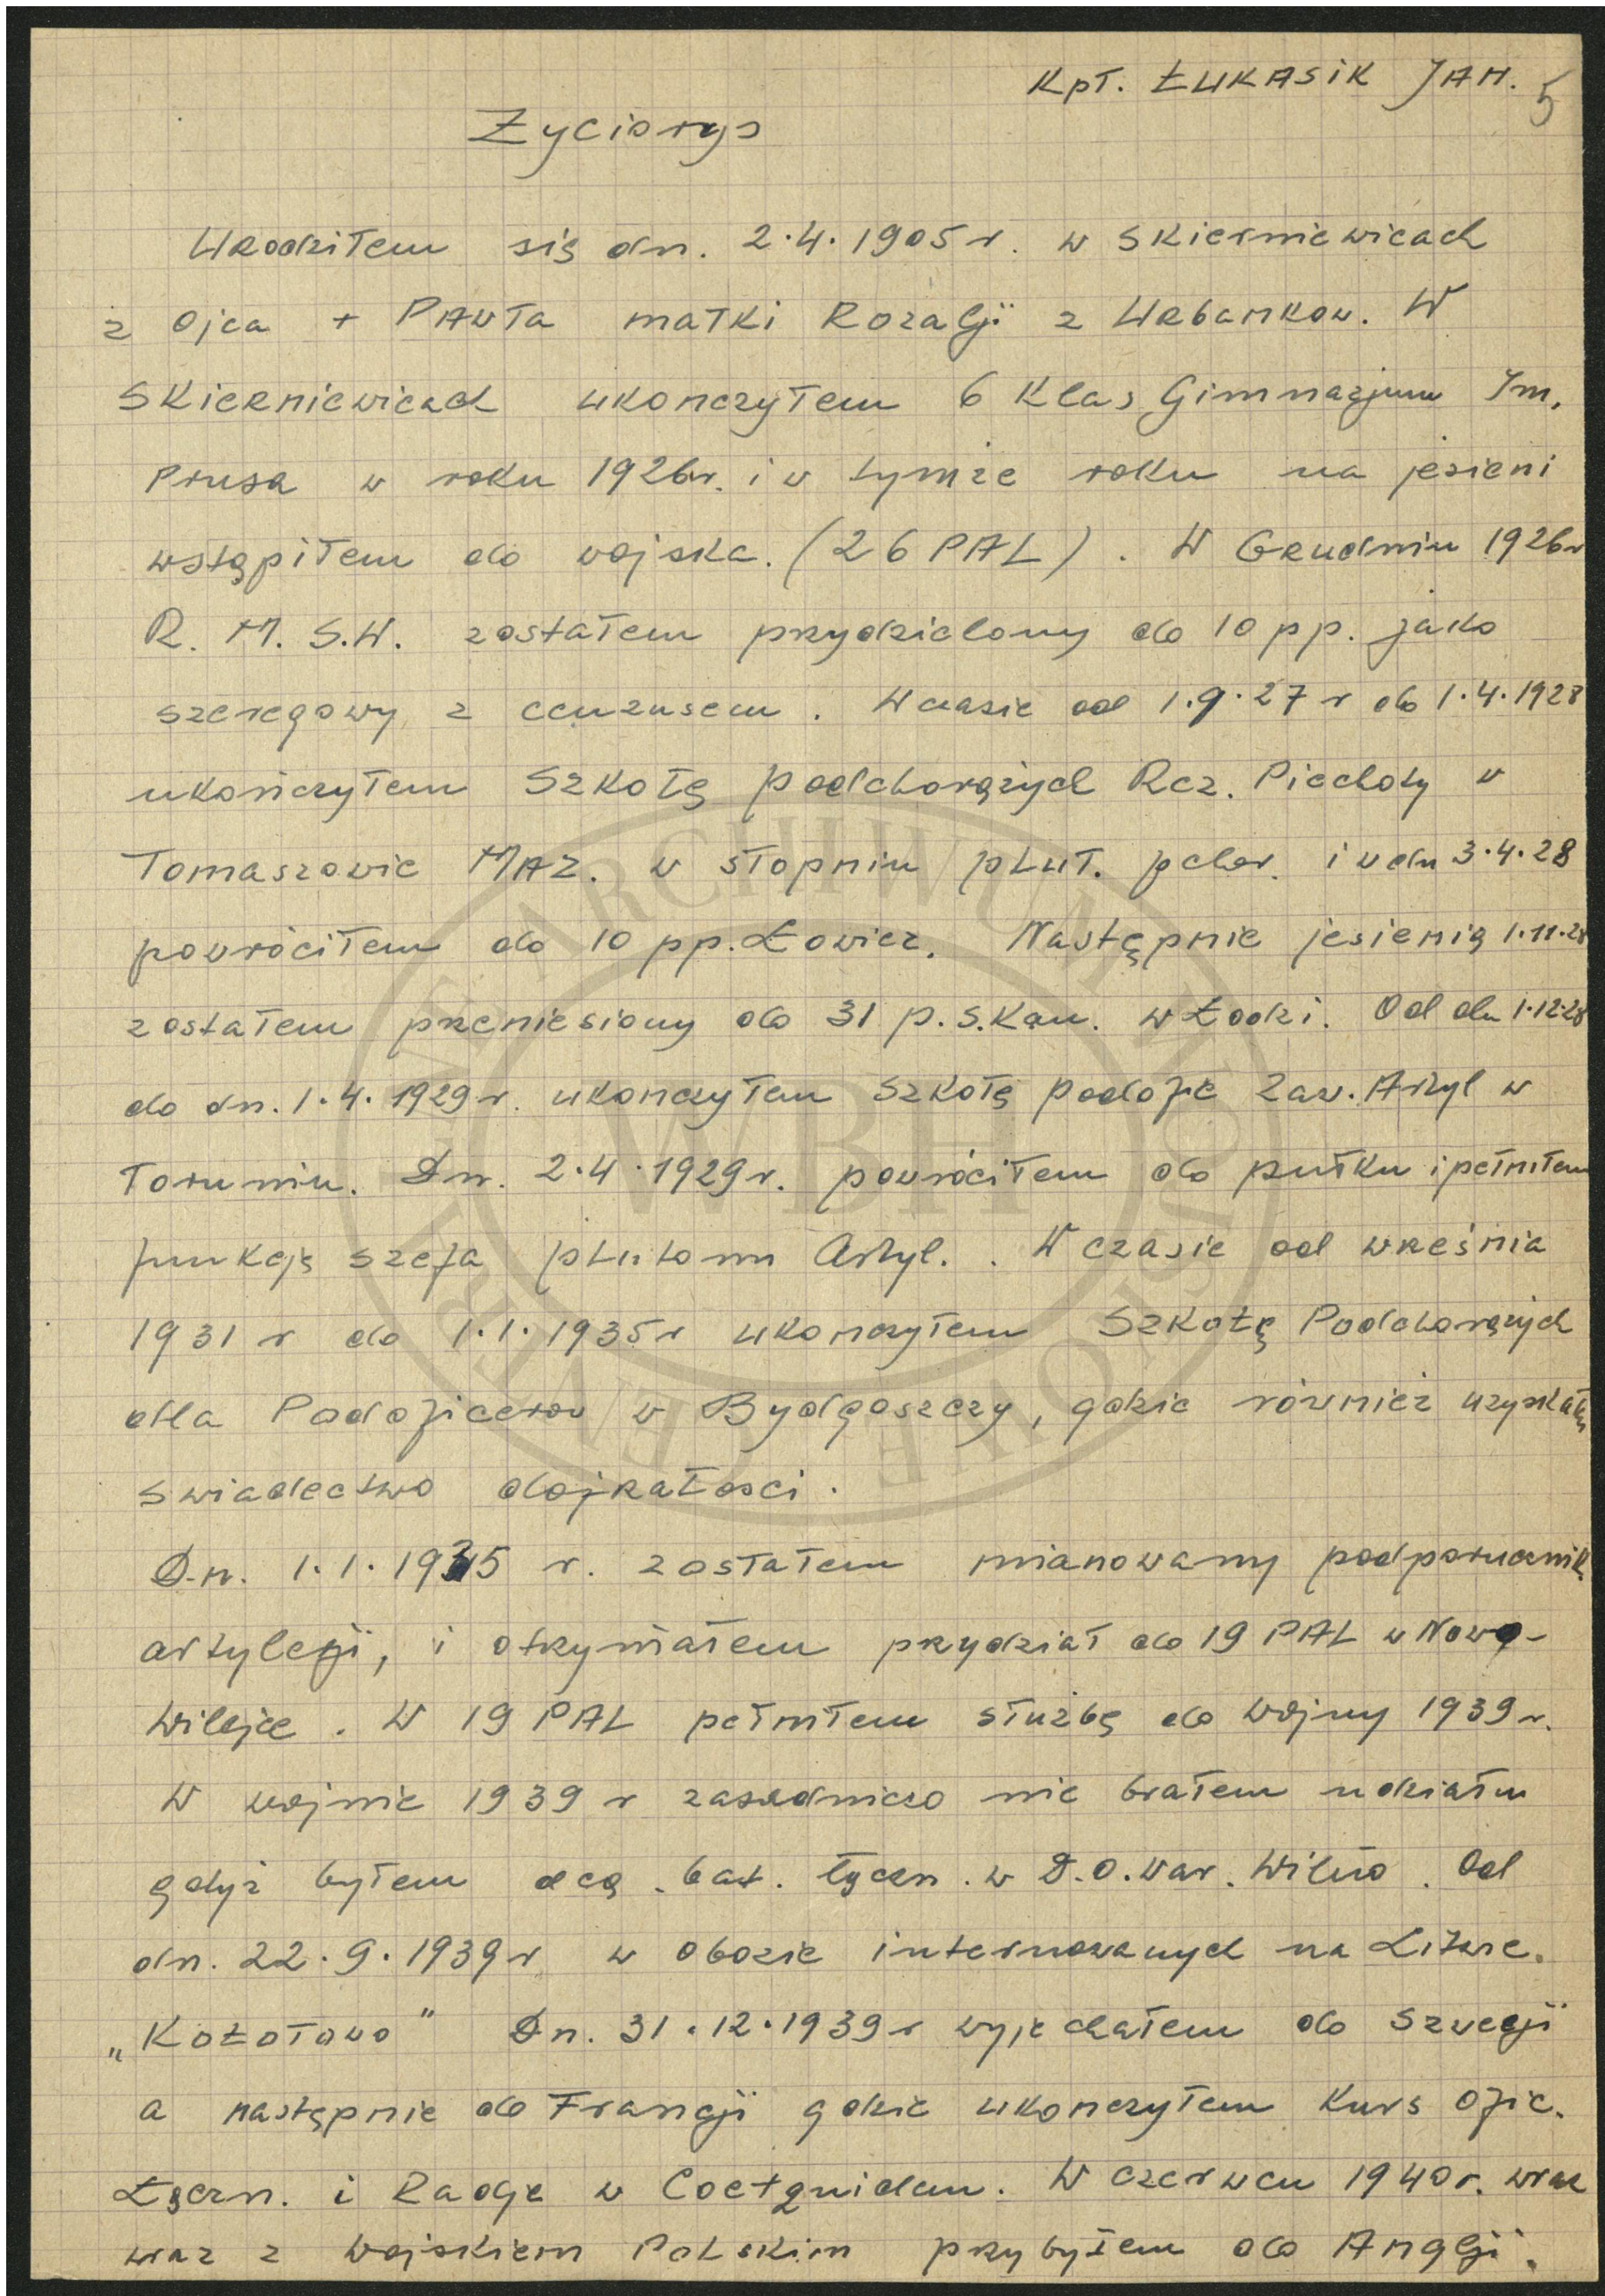 Kpt. ŁUKASIK JAN. 5
Życiorys
Urodziłem się dn. 2.4.1905 r. w Skierniewicach
z Ojca + PAWŁA matki Rozalji z Urbanków. W
Skierniewicach ukonczyłem 6 klas Gimnazjum Im.
Prusa w roku 1926r. i w tymże roku na jesieni
wstąpiłem do wojska. (26 PAL). W Grudniu 1926r
R. M. S. W. zostałem przydzielony do 10 pp. jako
szeregowy z cenzusem. W czasie od 1.9.27 r do 1.4.1928
ukończyłem Szkołę podchorążych Rez. Piechoty w
Tomaszowie MAZ. w stopniu plut. pchor. i w dn 3.4.28
powróciłem do 10 pp. Łowicz. Następnie jesienią 1.11.28
zostałem przeniesiony do 31 p.s.Kan. w Łodzi. Od dn 1.12.28
do dn. 1.4.1929 r. ukonczyłem Szkołę podofic Zaw. Artyl w
Toruniu. Dn. 2.4.1929 r. powróciłem do pułku i pełniłem
funkcję szefa plutonu Artyl. . W czasie od września
1931 r do 1.1.1935 r ukonczyłem Szkołę Podchorążych
dla Podoficerow w Bydgoszczy, gdzie również uzyskałem
swiadectwo dojrzałosci.
Dn. 1.1.1935 r. zostałem mianowany podporucznik.
artylerji, i otrzymałem przydział do 19 PAL w Nowo-
Wilejce. W 19 PAL pełniłem służbę do wojny 1939 r.
W wojnie 1939 r zasadniczo nie brałem udziału
gdyż byłem dcą. bat. łączn. w D.O.War. Wilno. Od
dn. 22.9.1939 r w obozie internowanych na Litwie.
„Kołotowo" Dn. 31.12.1939 r wyjechałem do Szwecji
a następnie do Francji gdzie ukonczyłem kurs ofic.
Łączn. i Radjo w Coetquidan. W czerwcu 1940 r. wraz
wraz z wojskiem Polskim przybyłem do Anglji.
CENTRALNE ARCHIWUM WOJSKOWE
WBH